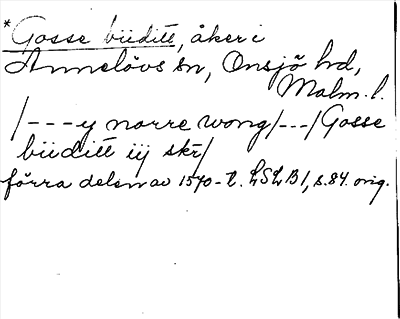 * Gosse biiditt, åker i
Annelövs sn, Onsjö hd,
Malm. l.
/---y norre wong/---/Gosse
biiditt iij skr/
förra delen av 1570-t. LSLB1, s.84. orig.